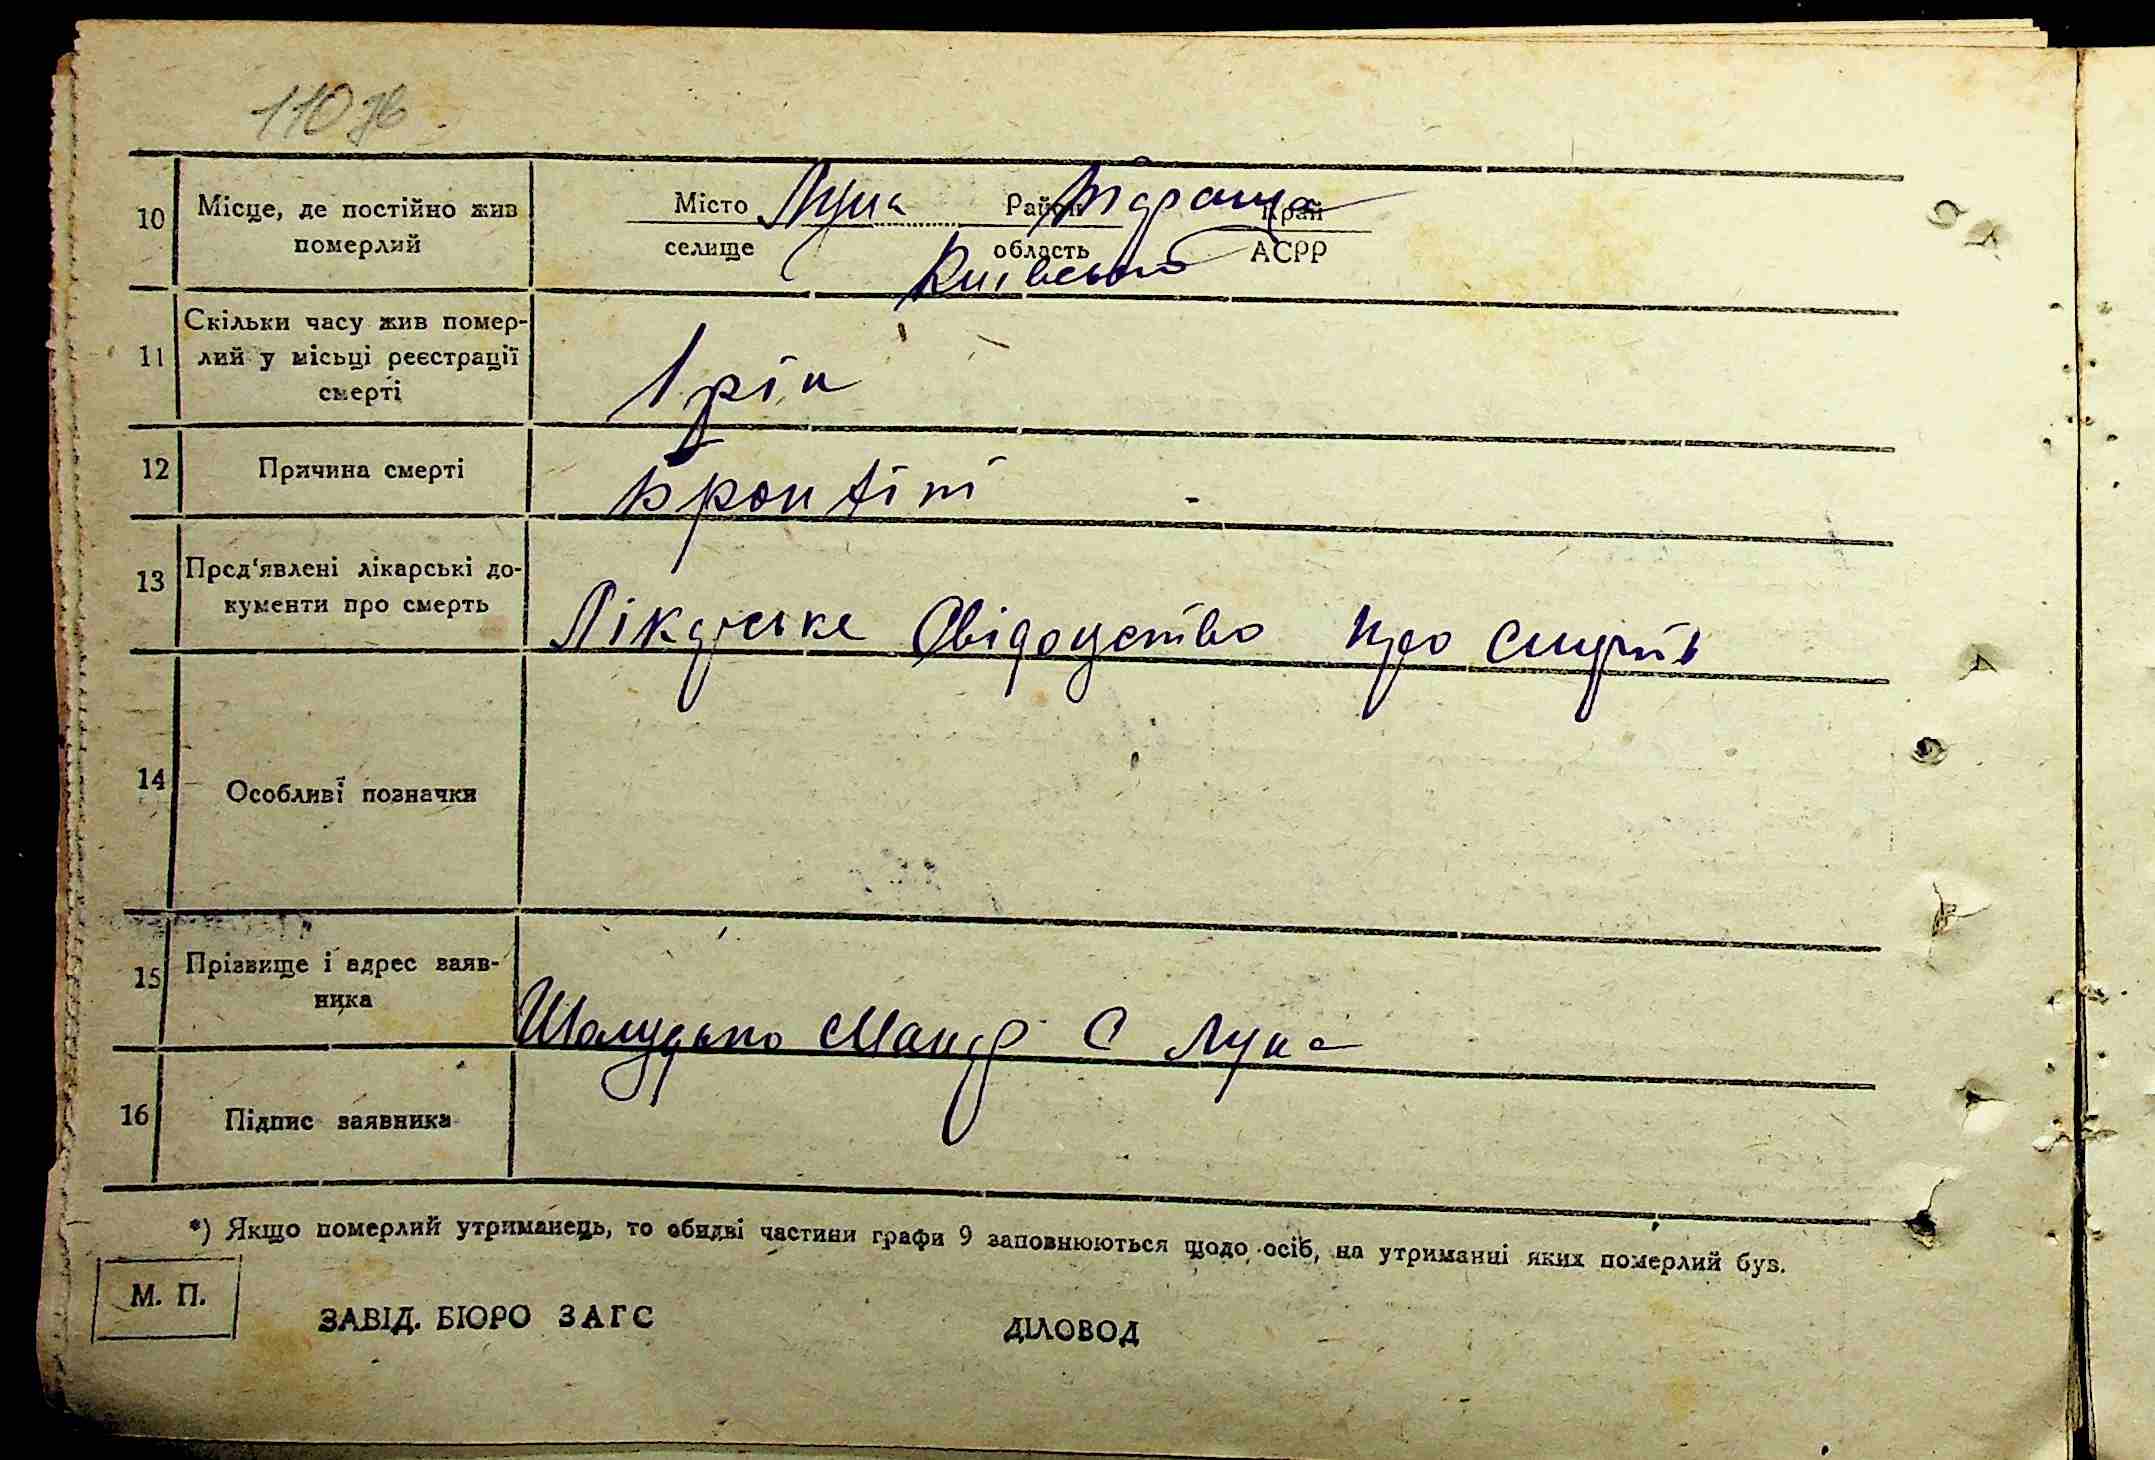 110 зв
10 Місце, де постійно жив Місто Лука Район Край
померлий селище область АСРР
Київської
11 Скільки часу жив помер-
лий у місьці реєстрації 1 рік
смерті
12 Причина смерті Бронхіт
13 Пред'явлені лікарські до-
кументи про смерть Лікарське Свідоцтво про смерть
14 Особливі позначки
15 Прізвище і адрес заяв-
ника Шолудько С Лука
16 Підпис заявника
*) Якщо померлий утриманець, то обидві частини графи 9 заповнюються щодо осіб, на утриманні яких померлий був.
М. П.
ЗАВІД. БЮРО ЗАГС ДІЛОВОД